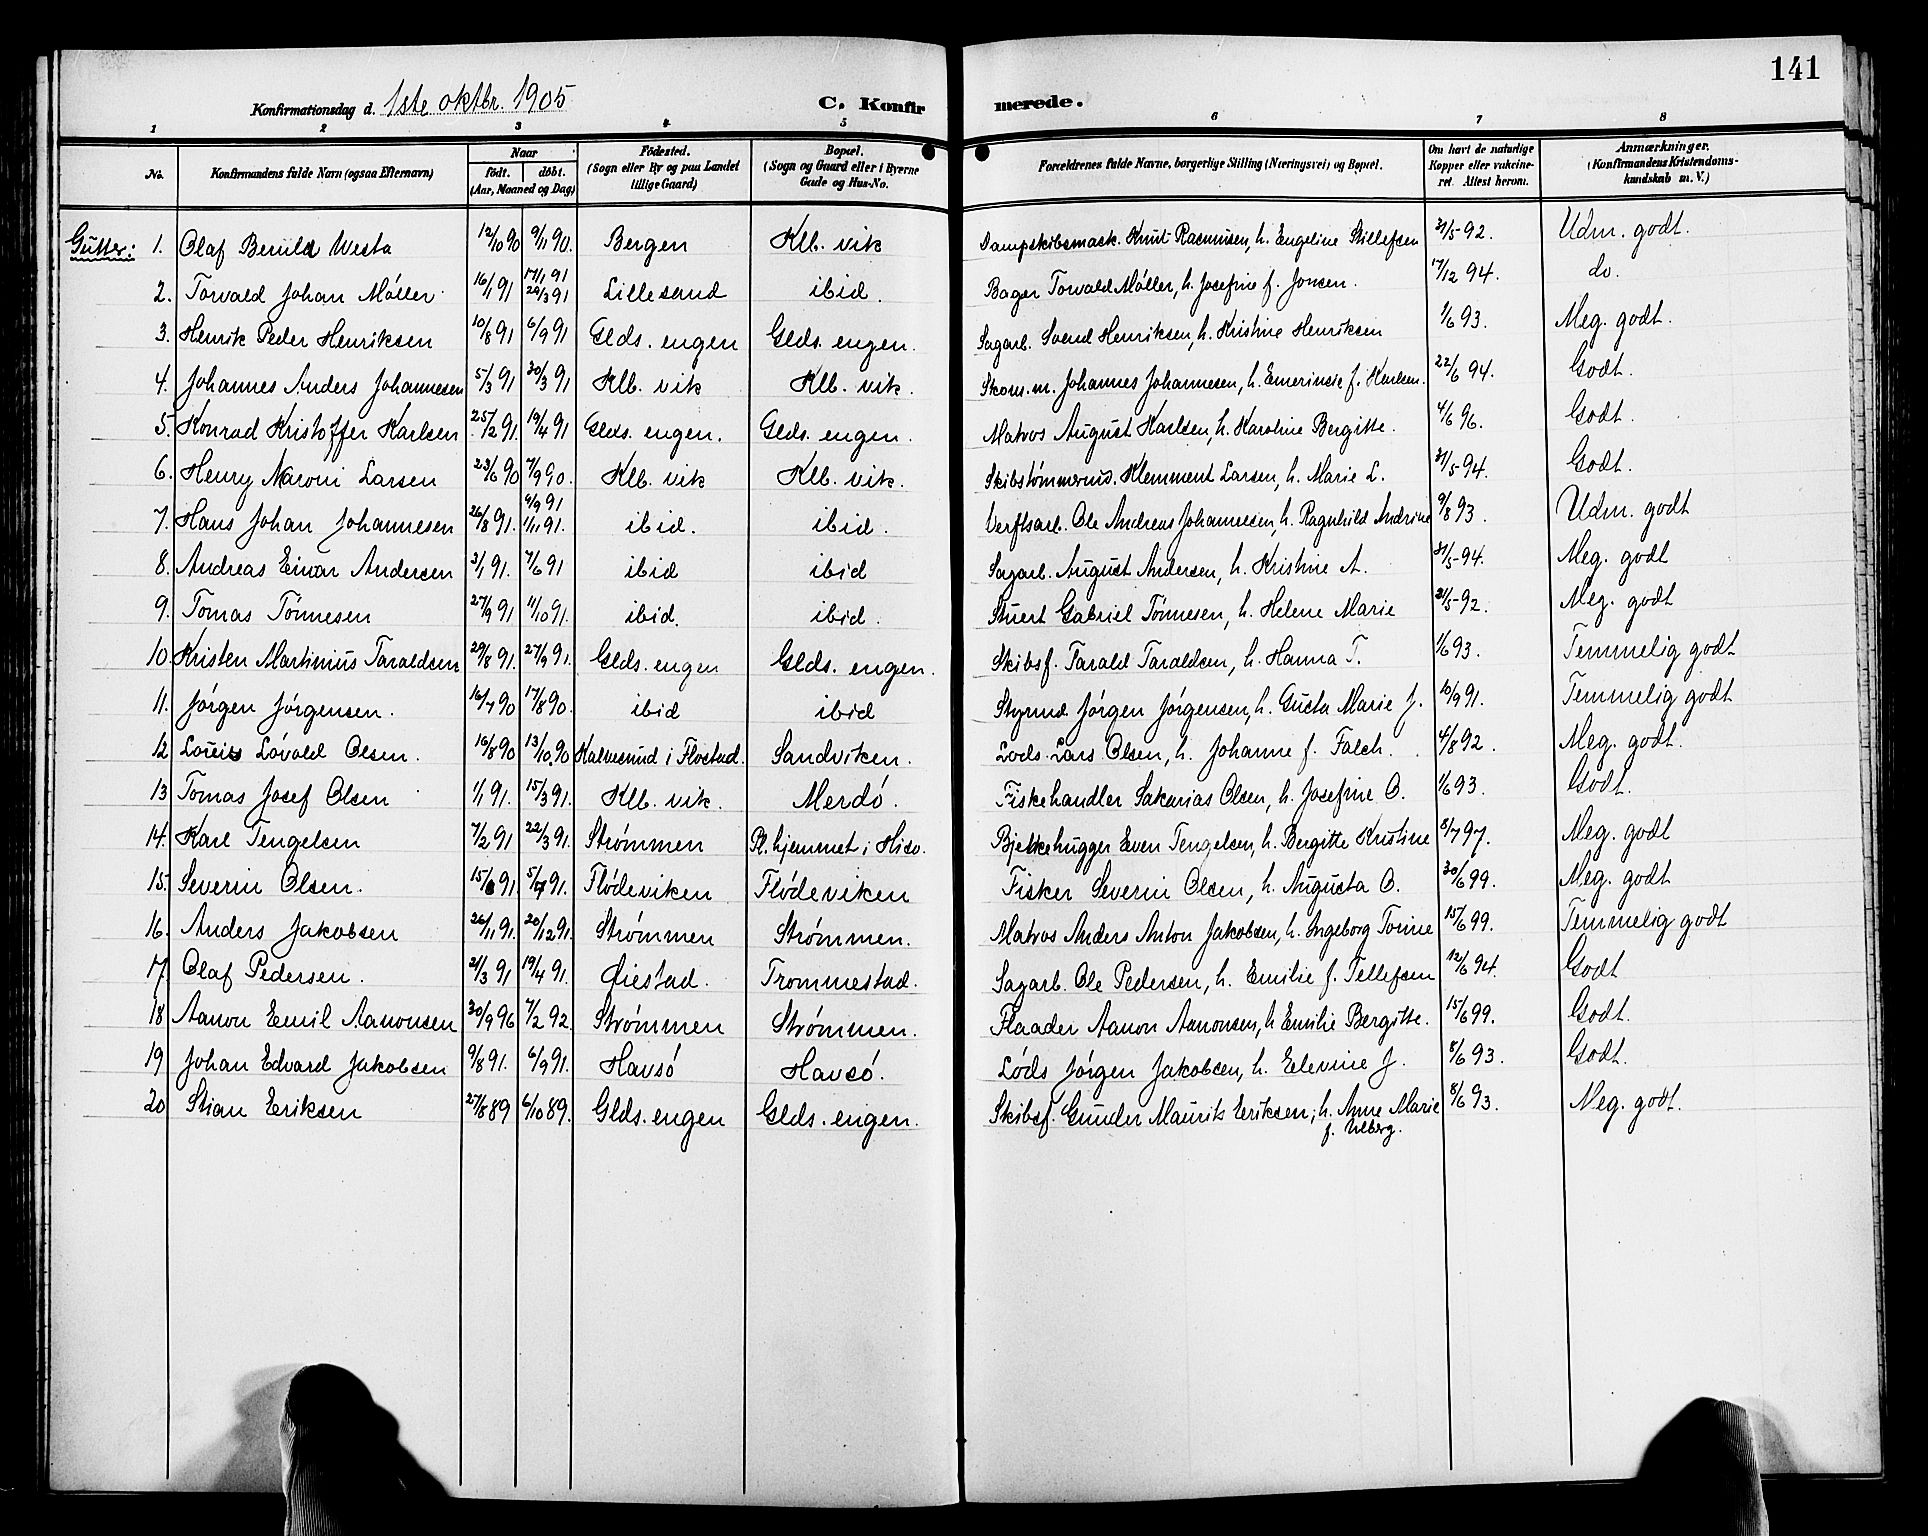 141
Konfirmationsdag d. 1ste oktbr. 1905 C. Konfirmerede.
1 2 3 4 5 6 7 8
No. Konfirmandens fulde Navn (ogsaa Efternavn) Naar født. døbt. (Aar, Maaned og Dag) Fødested. (Sogn eller By og paa Landet tillige Gaard) Bopæl. (Sogn og Gaard eller i Byerne Gade og Hus-No. Forældrenes fulde Navne, borgerlige Stilling (Næringsvei) og Bopæl. Om havt de naturlige Kopper eller vakcineret. Attest herom. Anmærkninger. (Konfirmandens Kristendomskundskab m. V.)
Gutter: 1. Olaf Westa 12/10 90 9/11 90. Bergen Klb. vik Dampskibsmask. Knut Rasmusen, h. Engeline 31/5-92. Udm. godt.
2. Torvald Johan Møller 16/1 91 17/1 91 29/3 91 Lillesand ibid. Bager Torvald Møller, h. Josefine f. Jonsen. 17/12 94. do.
3. Henrik Peder Henriksen 10/8 91 6/9 91 Glds. engen Glds. engen. Sagarb. Svend Henriksen, h. Kristine Henriksen 1/6 93. Meg. godt.
4. Johannes Anders Johannesen 5/3 91 30/3 91 Klb. vik Klb. vik. Skom. m. Johannes Johannesen, h. 22/6 94. Godt.
5. Konrad Kristoffer Karlsen 25/2 91. 19/4 91 Glds. engen. Glds. engen. Matros August Karlsen, h. Karoline Bergitte. 4/6 96. Godt.
6. Henry Maroni Larsen 23/6 90 7/9 90. Klb. vik Klb. vik. Skibstømmermd. Klemment Larsen, h. Marie L. 31/5-94. Godt.
7. Hans Johan Johannesen 26/8 91. 6/9 91 1/11 91. ibid. ibid. Verftsarb. Ole Andreas Johannesen, h. Ragnhild Andrine 9/8 93. Udm. godt
8. Andreas Einar Andersen 3/1 91. 7/6 91 ibid ibid Sagarb. August Andersen, h. Kristine A. 31/5-94. Meg. godt
9. Tomas Tønnesen 27/9 91 11/10 91. ibid. ibid. Stuert Gabriel Tønnesen, h. Helene Marie 31/5-92. Meg. godt
10. Kristen Martinius Taraldsen 29/8 91. 27/9 91. Glds. engen Glds. engen. Skibsf. Tarald Taraldsen, h. Hanna T. 1/6 93. Temmelig godt
11. Jørgen Jørgensen. 16/7 90 17/8 90. ibid ibid Styrmd. Jørgen Jørgensen, h. Gusta Marie J. 10/9 91. Temmelig godt
12 Louis Løvold Olsen. 16/8 90 13/10 90 Kalvesund i Flostad. Sandviken. Lods. Lars Olsen, h. Johanne f. Falch. 4/8 92. Meg. godt.
13 Tomas Josef Olsen 1/1 91. 15/3 91. Klb. vik. Merdø. Fiskehandler Sakarias Olsen, h. Josefine O. 1/6 93. Godt.
14. Karl Tengelsen 7/2 91 22/3 91. Strømmen Pl. hjemmet i Hisø. Bjelkehugger Even Tengelsen, h. Bergitte Kristine 8/7 97. Meg. godt
15. Severin Olsen. 15/6 91 5/7 91. Flødeviken Flødeviken Fisker Severin Olsen, h. Augusta O. 30/6 99. Meg. godt
16. Anders Jakobsen 26/11 91. 20/12 91. Strømmen Strømmen. Matros Anders Anton Jakobsen, h. Ingeborg Tonine 15/6 99. Temmelig godt
17. Olaf Pedersen. 21/3 91 19/4 91. Øiestad. Trommestad. Sagarb. Ole Pedersen, h. Emilie f. Tellefsen 12/6 94. Godt
18 Aanon Emil Aanonsen 30/9 96 7/2 92. Strømmen Strømmen. Flaader Aanon Aanonsen, h Emilie Bergitte. 15/6 99. Godt.
19 Johan Edvard Jakobsen 9/8 91. 6/9 91. Havsø Havsø. Lods Jørgen Jakobsen, h. Elevine J. 8/6 93. Godt.
20 Stian Eriksen 27/8 89 6/10 89. Glds. engen Glds. engen. Skibsf. Gunder Maurits Eriksen; h. Anne Marie 8/6 93. Meg. godt.
f. Ulberg.